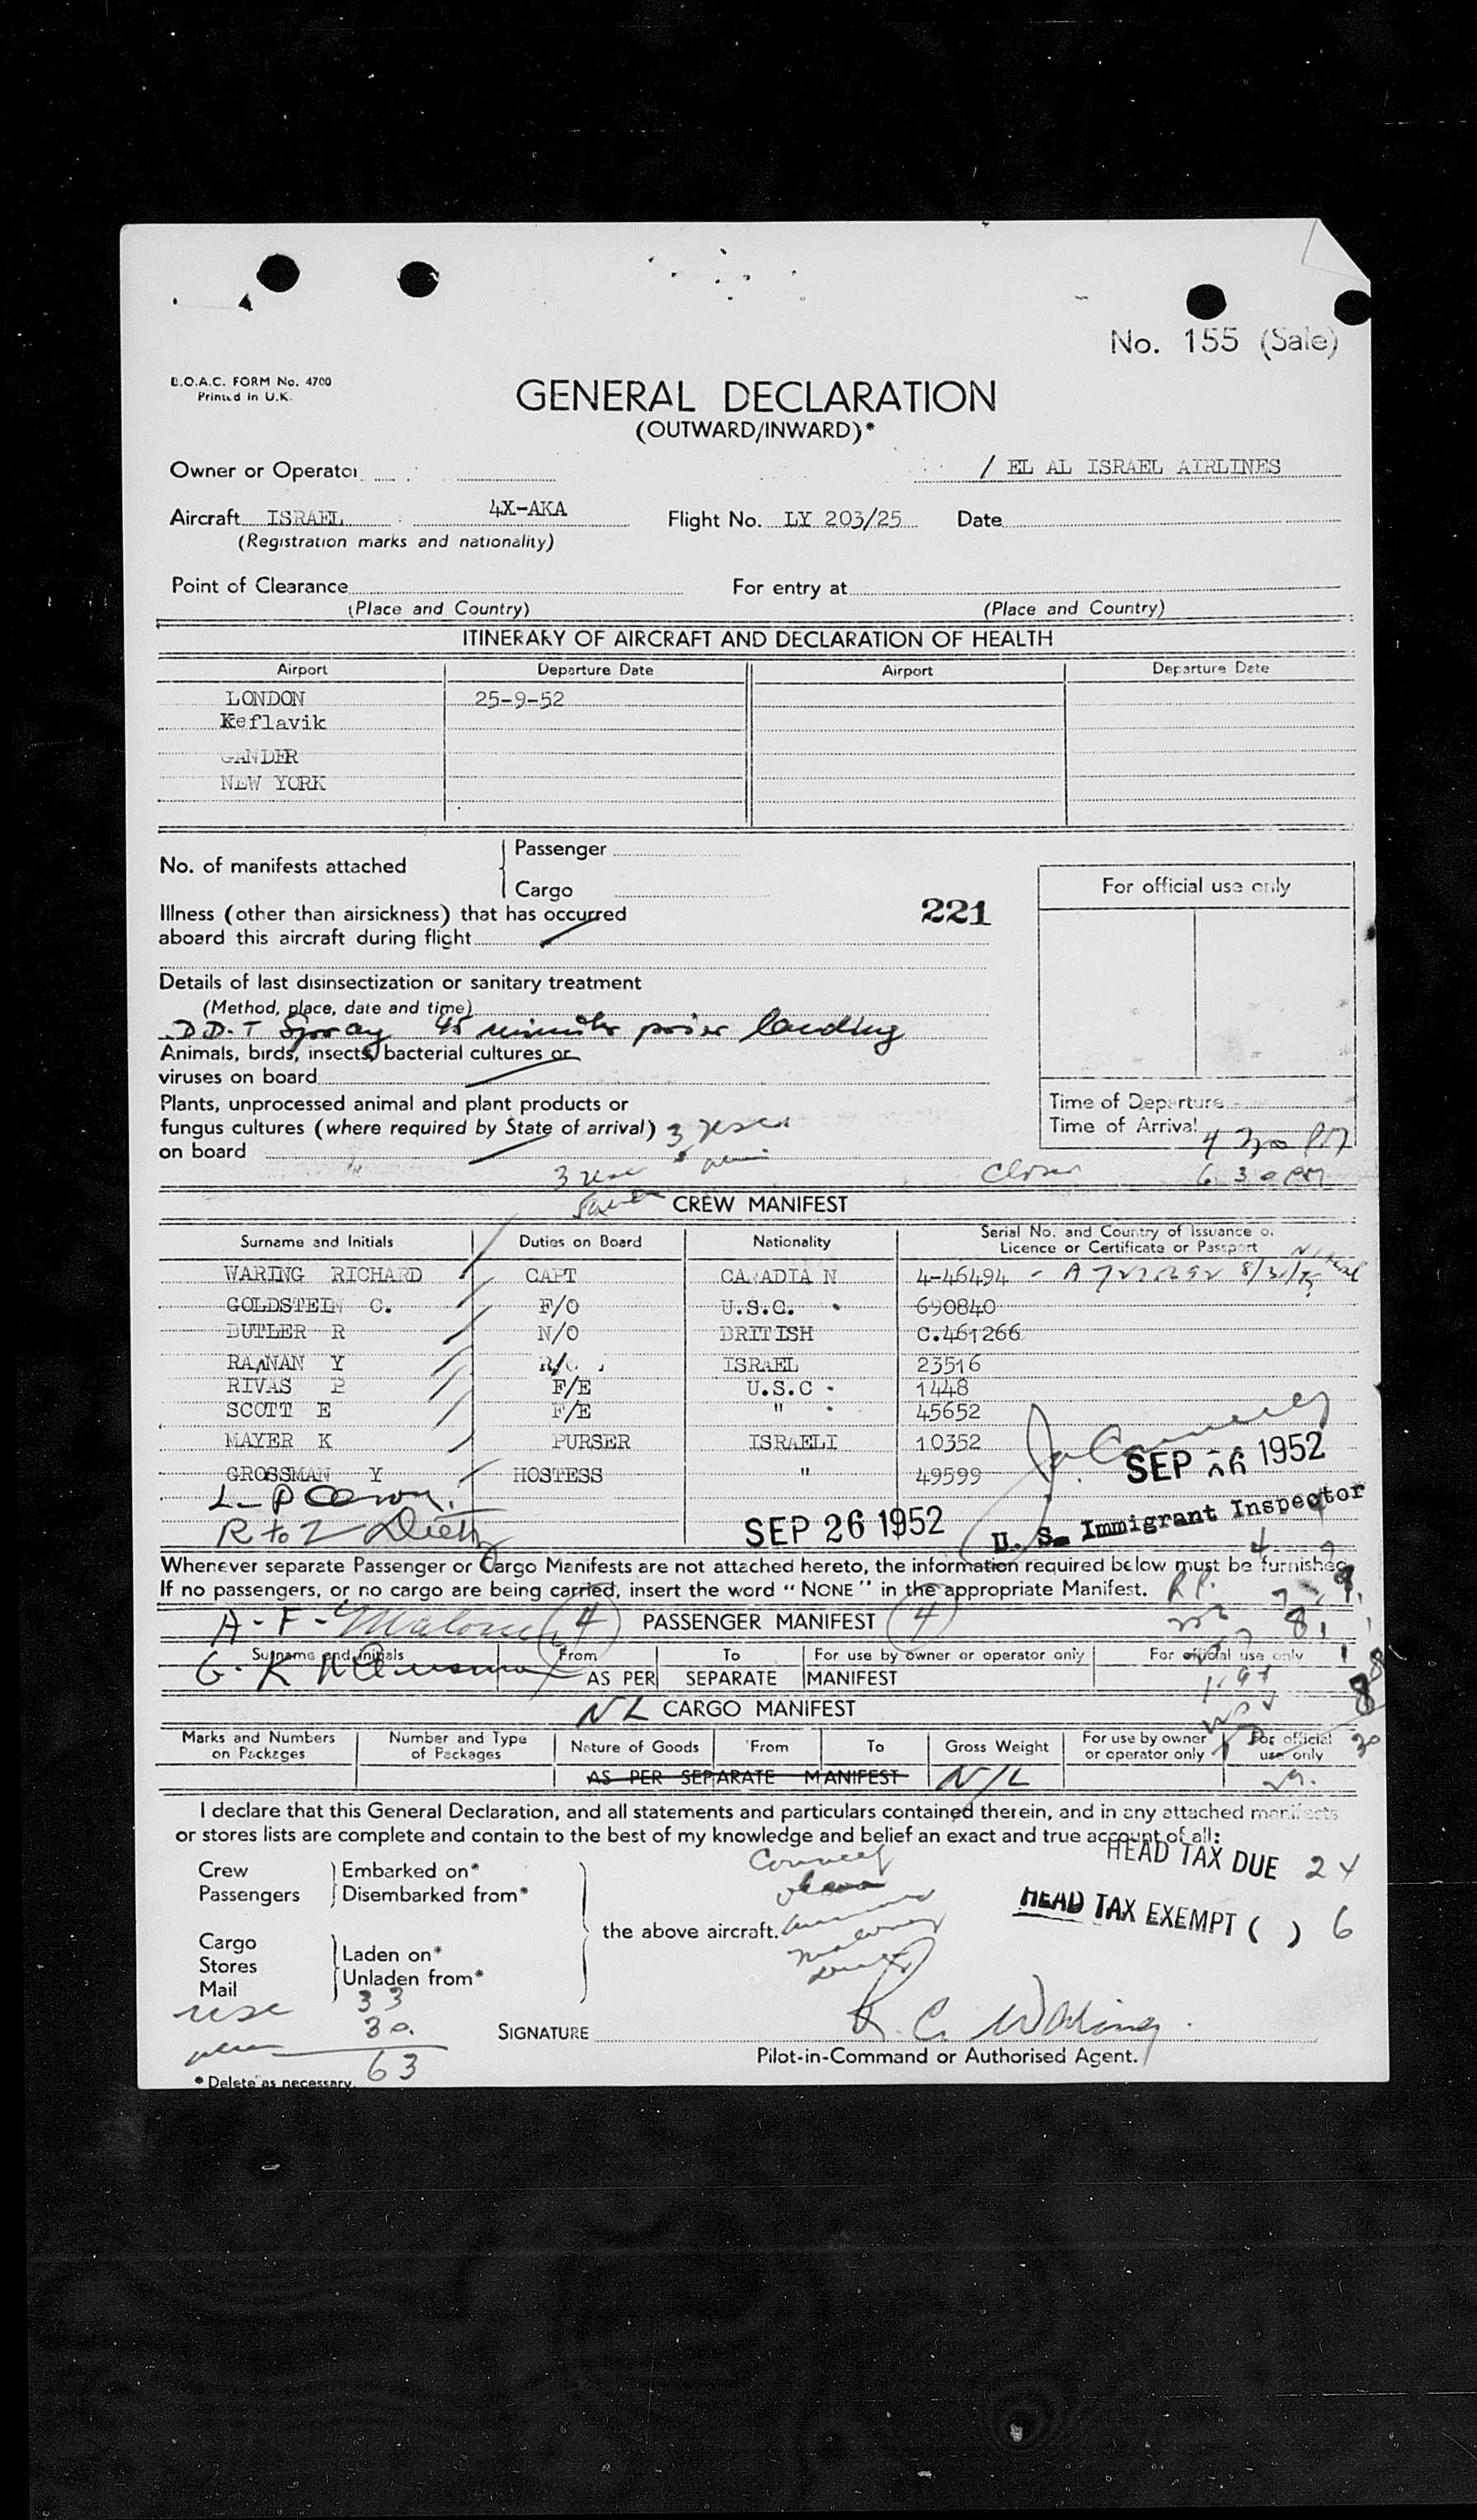 No. 155 (Sale)
B.O.A.C. FORM No. 4700
Printed in U.K.
GENERAL DECLARATION
(OUTWARD/INWARD)*
Owner or Operator / EL AL ISRAEL AIRLINES
Aircraft ISRAEL 4X-AKA Flight No. LY 203/25 Date
(Registration marks and nationality)
Point of Clearance For entry at
(Place and Country) (Place and Country)
ITINERARY OF AIRCRAFT AND DECLARATION OF HEALTH
Airport Departure Date Airport Departure Date
LONDON 25-9-52
Keflavik
GANDER
NEW YORK
No. of manifests attached
Passenger
Cargo
For official use only
Illness (other than airsickness) that has occurred
aboard this aircraft during flight
221
Details of last disinsectization or sanitary treatment
(Method, place, date and time)
D.D.T Spray 45 minutes prior landing
Animals, birds, insects, bacterial cultures or
viruses on board
Plants, unprocessed animal and plant products or
fungus cultures (where required by State of arrival)
on board
Time of Departure
Time of Arrival
6 30 PM
CREW MANIFEST
Surname and Initials Duties on Board Nationality Serial No. and Country of Issuance of
Licence or Certificate or Passport
WARING RICHARD CAPT CANADIAN 4-46494
GOLDSTEIN C. F/O U.S.C. 690840
BUTLER R N/O BRITISH C.461266
RAANAN Y R/O ISRAEL 23516
RIVAS P F/E U.S.C 1448
SCOTT E F/E " 45652
MAYER K PURSER ISRAELI 10352
GROSSMAN Y HOSTESS " 49599
SEP 26 1952
SEP 26 1952
U. S. Immigrant Inspector
Whenever separate Passenger or Cargo Manifests are not attached hereto, the information required below must be furnished.
If no passengers, or no cargo are being carried, insert the word "NONE" in the appropriate Manifest.
A-F- Maloney 4 PASSENGER MANIFEST 4
Surname and Initials From To For use by owner or operator only For official use only
AS PER SEPARATE MANIFEST
CARGO MANIFEST
Marks and Numbers on Packages Number and Type of Packages Nature of Goods From To Gross Weight For use by owner or operator only For official use only
AS PER SEPARATE MANIFEST
I declare that this General Declaration, and all statements and particulars contained therein, and in any attached manifests
or stores lists are complete and contain to the best of my knowledge and belief an exact and true account of all:
HEAD TAX DUE 24
HEAD TAX EXEMPT ( ) 6
Crew
Passengers
Embarked on*
Disembarked from*
Cargo
Stores
Mail
Laden on*
Unladen from*
the above aircraft.
33
30
63
SIGNATURE R. C. Waring
Pilot-in-Command or Authorised Agent.
* Delete as necessary.